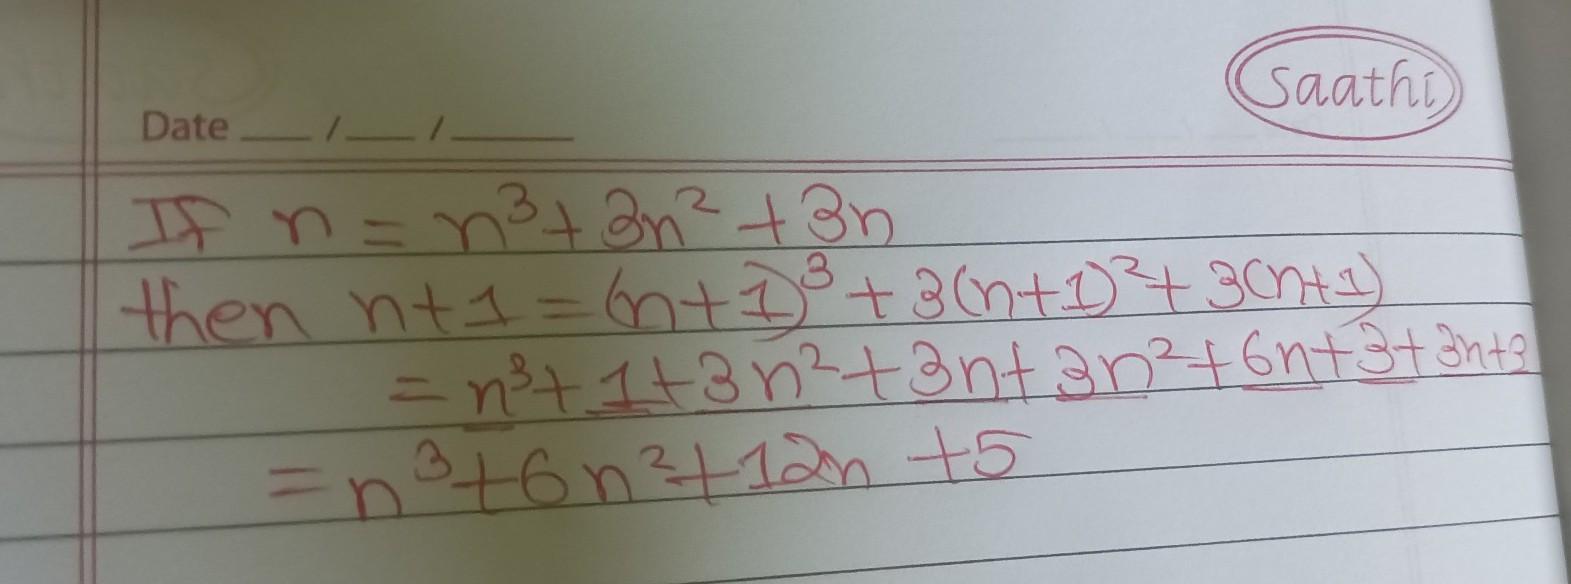 saathi
Date __/__/____
If n = n³ + 3n² + 3n
then n+1 = (n+1)³ + 3(n+1)² + 3(n+1)
= n³ + 1 + 3n² + 3n + 3n² + 6n + 3 + 3n + 3
= n³ + 6n² + 12n + 5